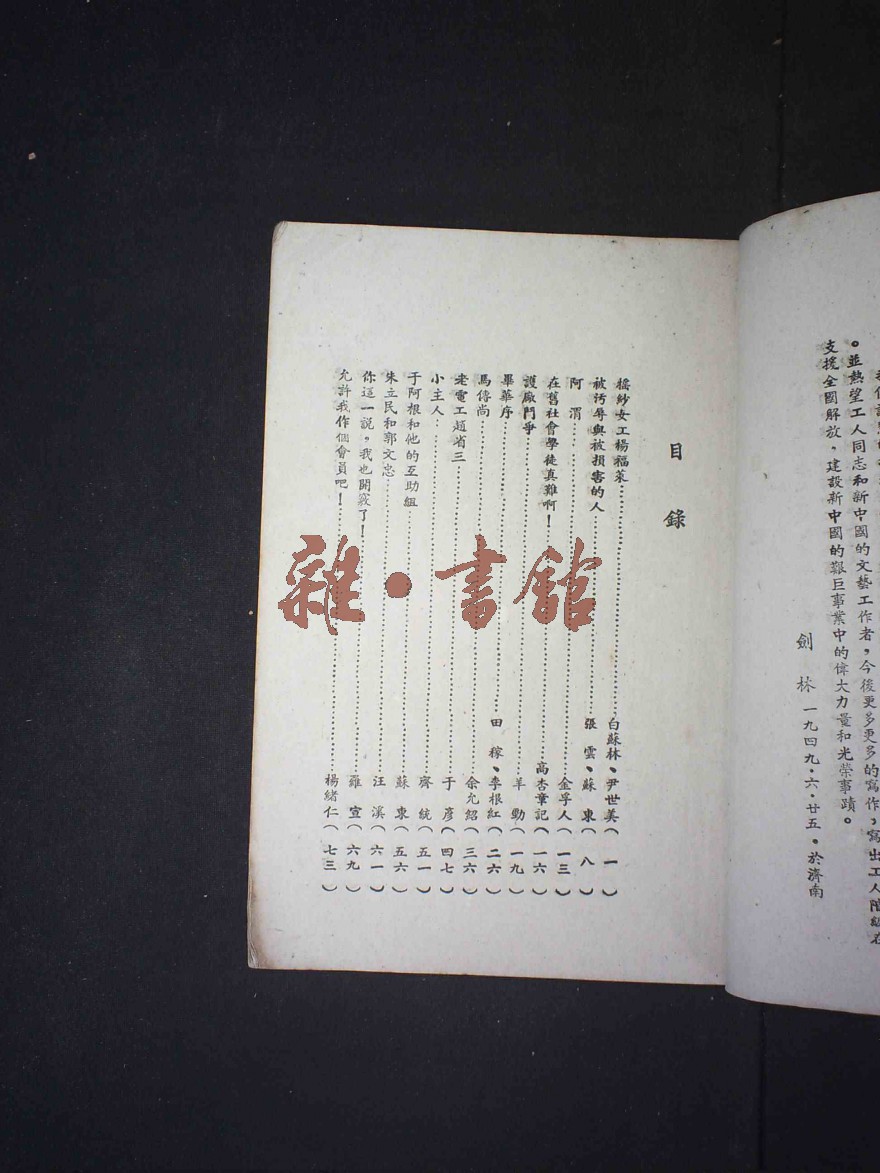 。並熱望工人同志和新中國的文藝工作者，今後更多更多的寫作，寫出工人階級在
支援全國解放，建設新中國的艱巨事業中的偉大力量和光榮事蹟。
劍林 一九四九·六·廿五。於濟南
目錄
搖紗女工楊福菜……白蘇林、尹世美（一）
被污辱與被損害的人……張雲、蘇東（八）
阿渭……金孚人（一三）
在舊社會學徒真難啊！……高杏章記（一六）
護廠門爭……羊勁（一九）
畢華序……田稼、李根紅（二六）
馬傳尚……余允紹（三六）
老電工趙省三……于彥（四七）
小主人……齊統（五一）
于阿根和他的互助組……蘇東（五六）
朱立民和郭文忠……汪溪（六一）
你這一説，我也開竅了！……羅宣（六九）
允許我作個會員吧！……楊緒仁（七三）
雜·書館